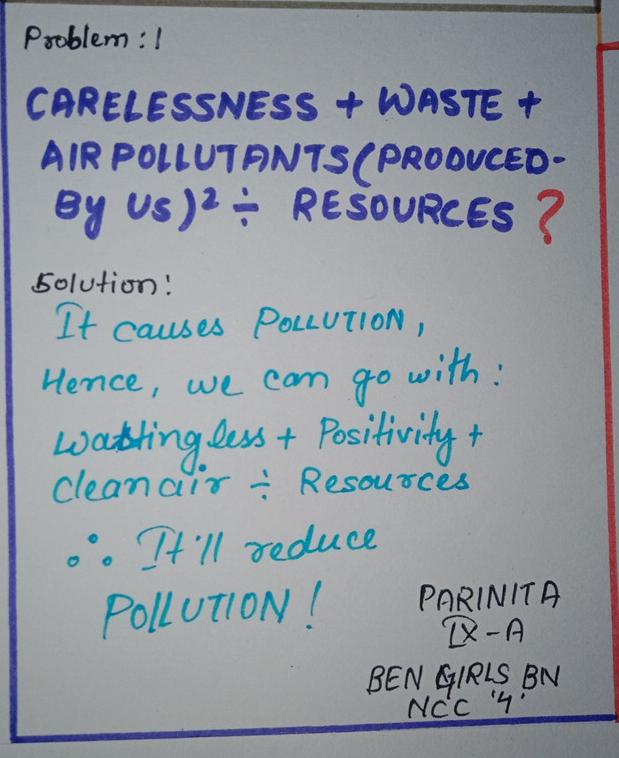 Problem : 1
CARELESSNESS + WASTE +
AIR POLLUTANTS (PRODUCED-
By Us)² ÷ RESOURCES ?
Solution:
It causes POLLUTION,
Hence, we can go with :
Wasting less + Positivity +
Clean air ÷ Resources
∴ It'll reduce
POLLUTION !
PARINITA
IX - A
BEN GIRLS BN
NCC '4'